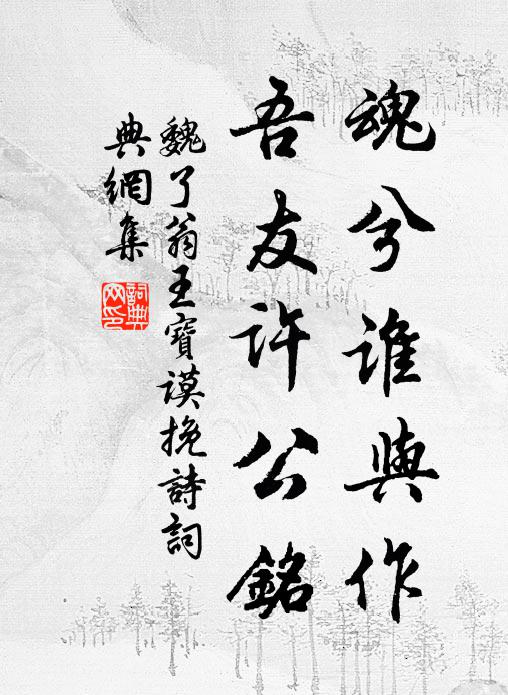 魂兮誰與作
吾友許公銘
魏了翁王寶謨挽詩詞
典網集
詞典
网印